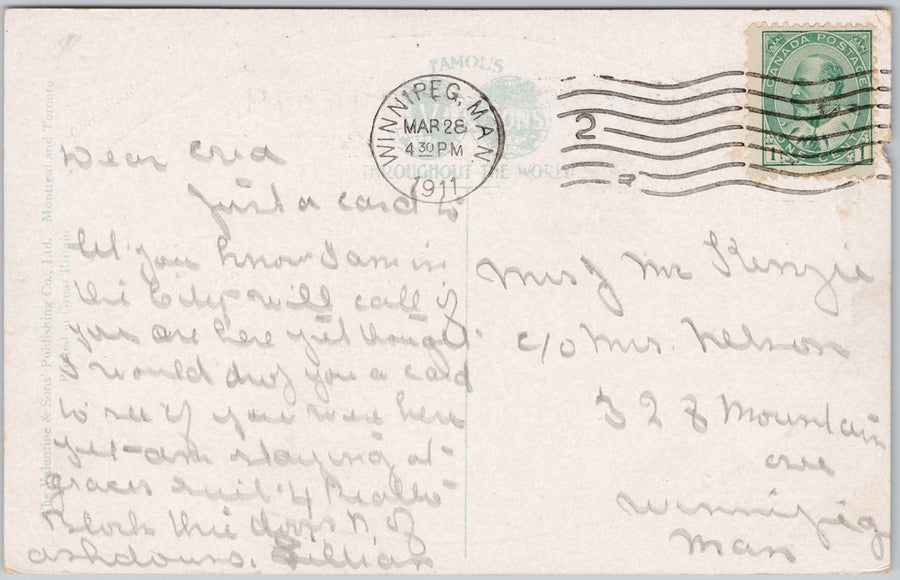 FAMOUS
THROUGHOUT THE WORLD
WINNIPEG, MAN.
MAR 28
4 30 PM
1911
2
CANADA POSTAGE
1 CENT 1
The Valentine & Sons' Publishing Co., Ltd. Montreal and Toronto
Printed in Great Britain
Dear
Just a card to
let you know I am in
the City will call if
you are here yet thought
I would drop you a card
to see if you were here
yet am staying at
graces suit 4 Rialto
Block three doors N of
ashdowns. Lillian
Mrs J Mc Kenzie
c/o Mrs. Nelson
328 Mountain
ave
Winnipeg
Man